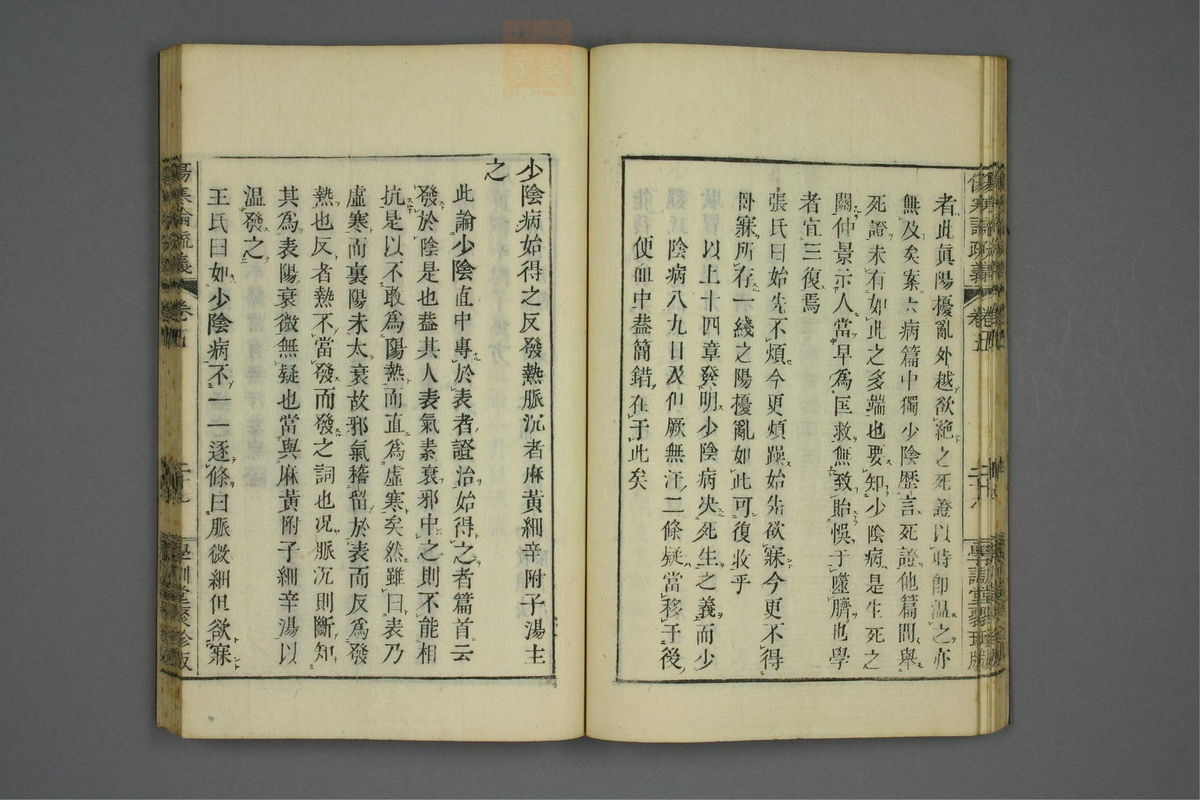 者此眞陽擾亂外越欲絕之死證以時卽温之亦
無及矣案六病篇中獨少陰歷言死證他篇間舉
死證未有如此之多端也要知少陰病是生死之
關仲景示人當早爲匡救無致貽悞于噬臍也學
者宜三復焉
張氏曰始先不煩今更煩躁始先欲寐今更不得
臥寐所存一綫之陽擾亂如此可復收乎
以上十四章發明少陰病決死生之義而少
陰病八九日及但厥無汗二條疑當移于後
便血中葢簡錯在于此矣
傷寒論疏義
卷五
二十八
學訓堂聚珍版
少陰病始得之反發熱脈沉者麻黃細辛附子湯主
之
此論少陰直中專於表者證治始得之者篇首云
發於陰是也葢其人表氣素衰邪中之則不能相
抗是以不敢爲陽熱而直爲虛寒矣然雖曰表乃
虛寒而裏陽未太衰故邪氣稽留於表而反爲發
熱也反者熱不當發而發之詞也况脈沉則斷知
其爲表陽衰微無疑也當與麻黃附子細辛湯以
温發之
王氏曰如少陰病不一一逐條曰脈微細但欲寐
傷寒論疏義
卷五
二十九
學訓堂聚珍版